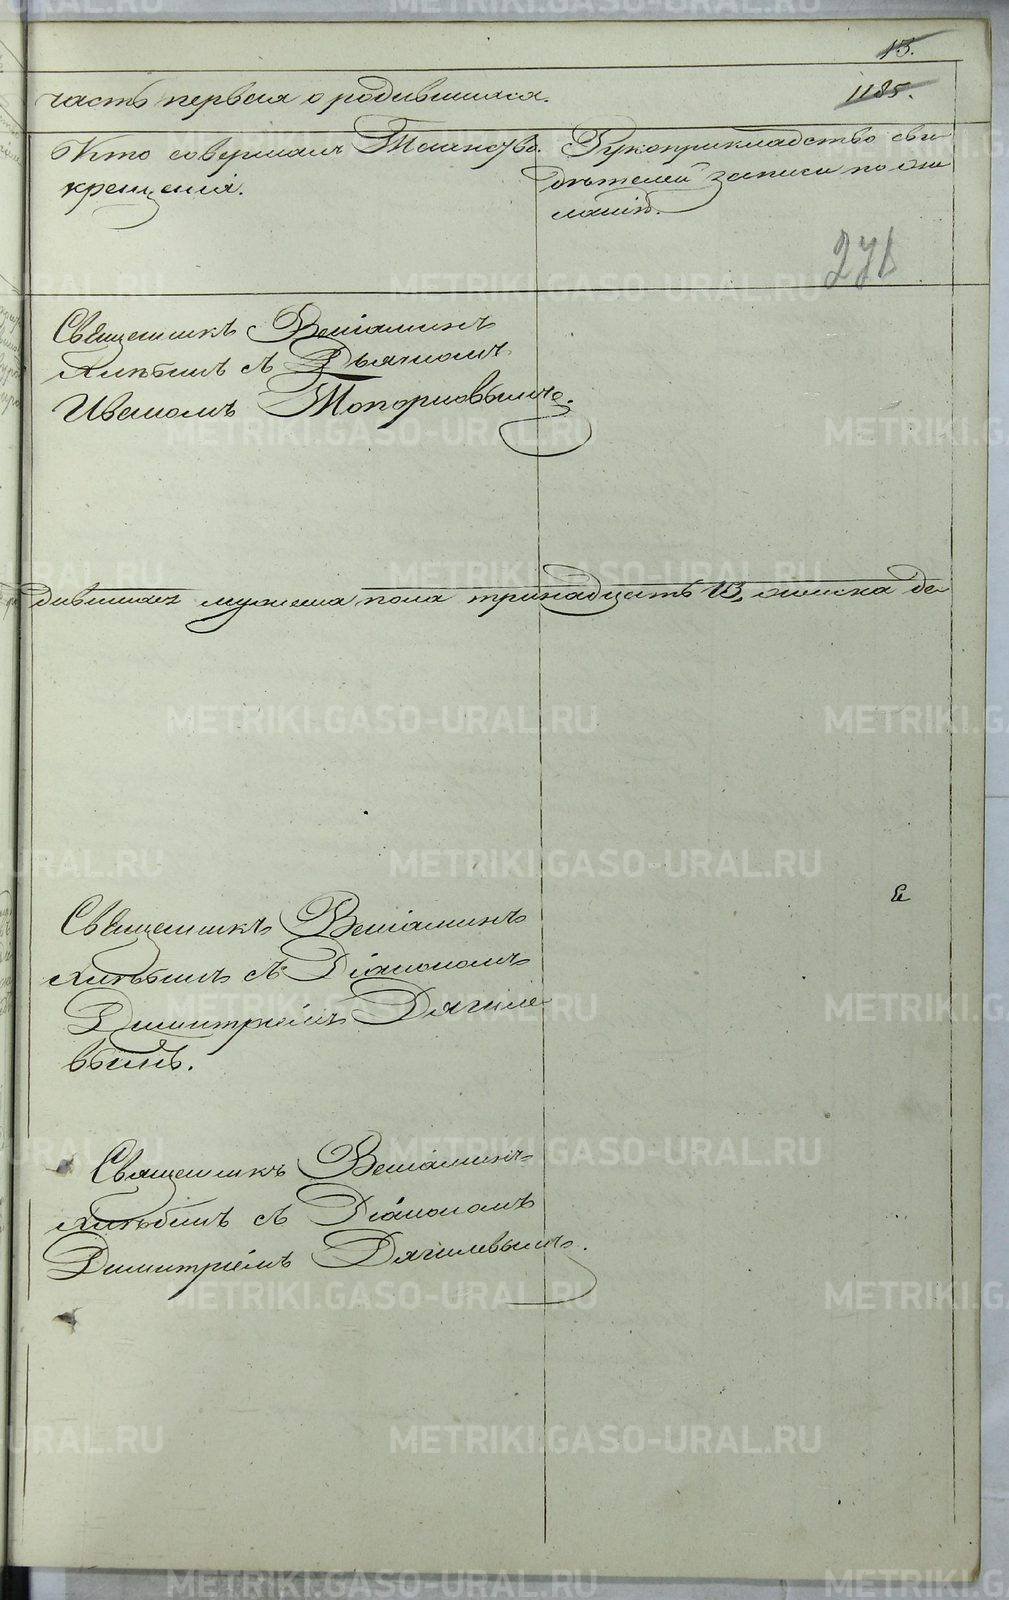 13.
1185.
часть первая о родившихся.
Кто совершалъ Таинство крещенія.
Рукоприкладство свидѣтелей записи по желанію.
271
Священникъ Веніаминъ
Хлѣбинъ съ Дьякономъ
Иваномъ Топорковымъ.
дившихся мужеска пола тринадцать 13, женска де
Священникъ Веніаминъ
Хлѣбинъ съ Діакономъ
Димитріемъ Дягиле
вымъ.
Священникъ Веніаминъ
Хлѣбинъ съ Діакономъ
Димитріемъ Дягилевымъ.
METRIKI.GASO-URAL.RU